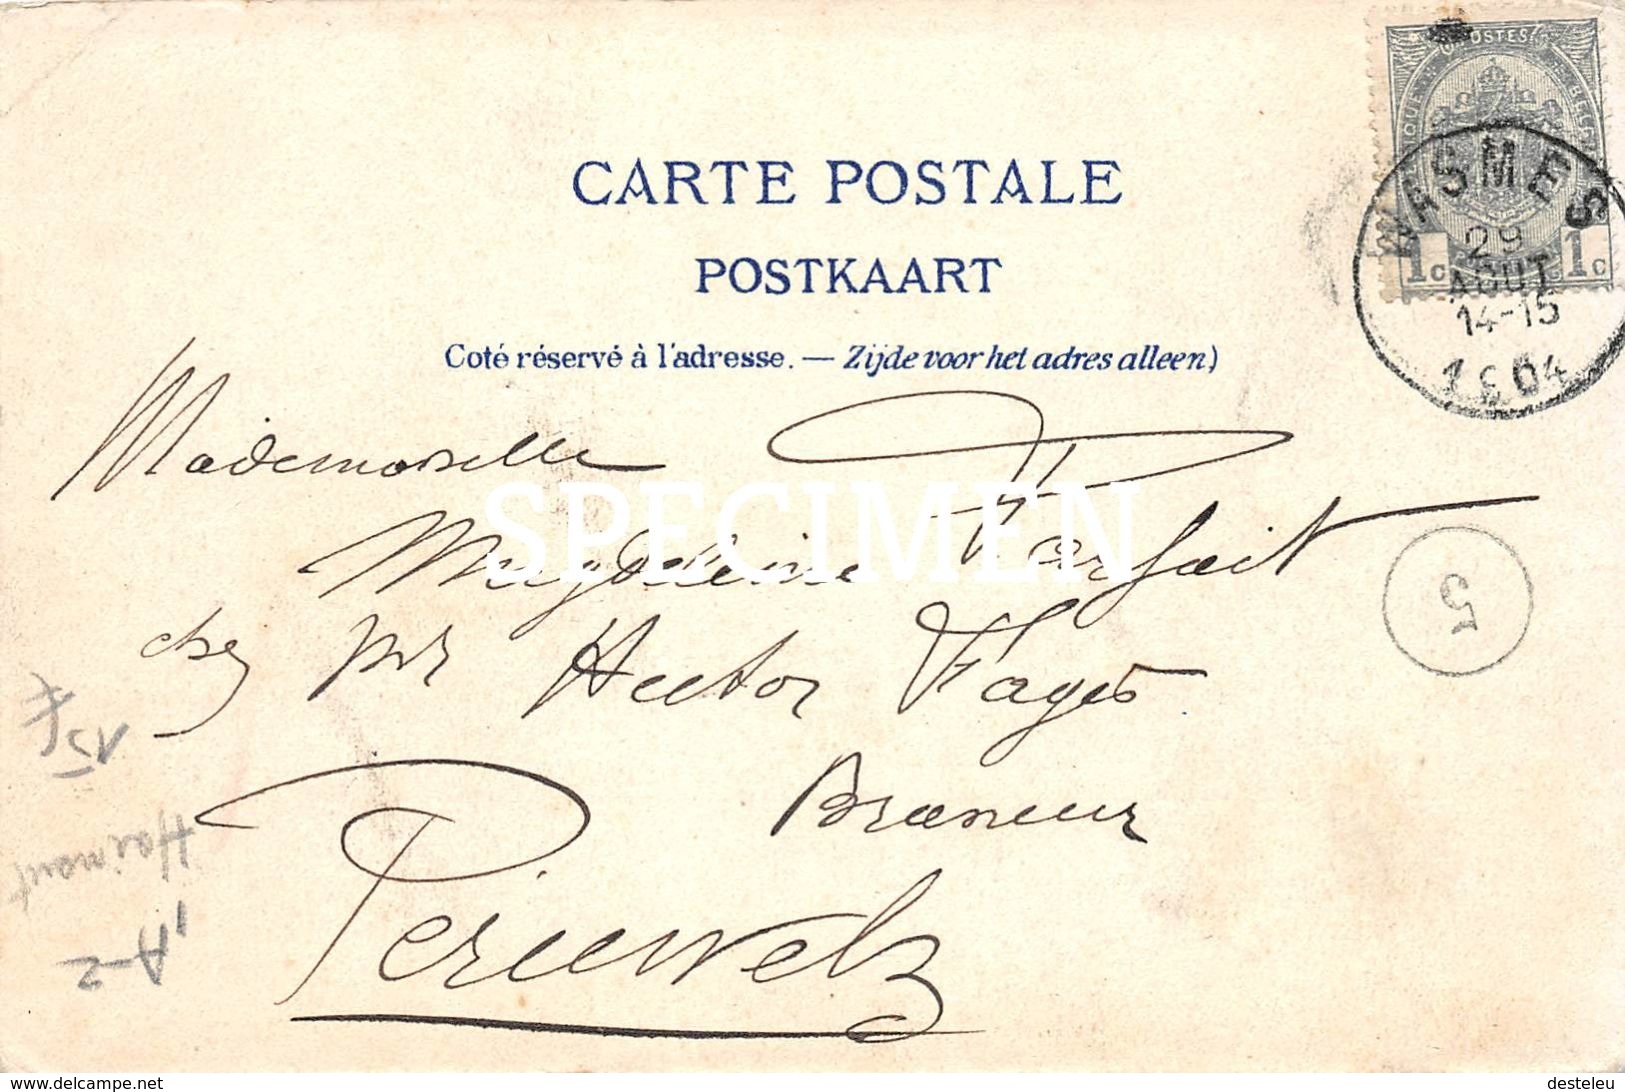 POSTES
BELGIQUE
1c 1c
WASMES
29
AOUT
14-15
1904
CARTE POSTALE
POSTKAART
Coté réservé à l'adresse. — Zijde voor het adres alleen)
Mademoiselle
Magdeleine Parfait
chez Mr Hector Fagès
Brasseur
Péruwelz
5
15 F
Hainaut
A-2
SPECIMEN
www.delcampe.net
desteleu